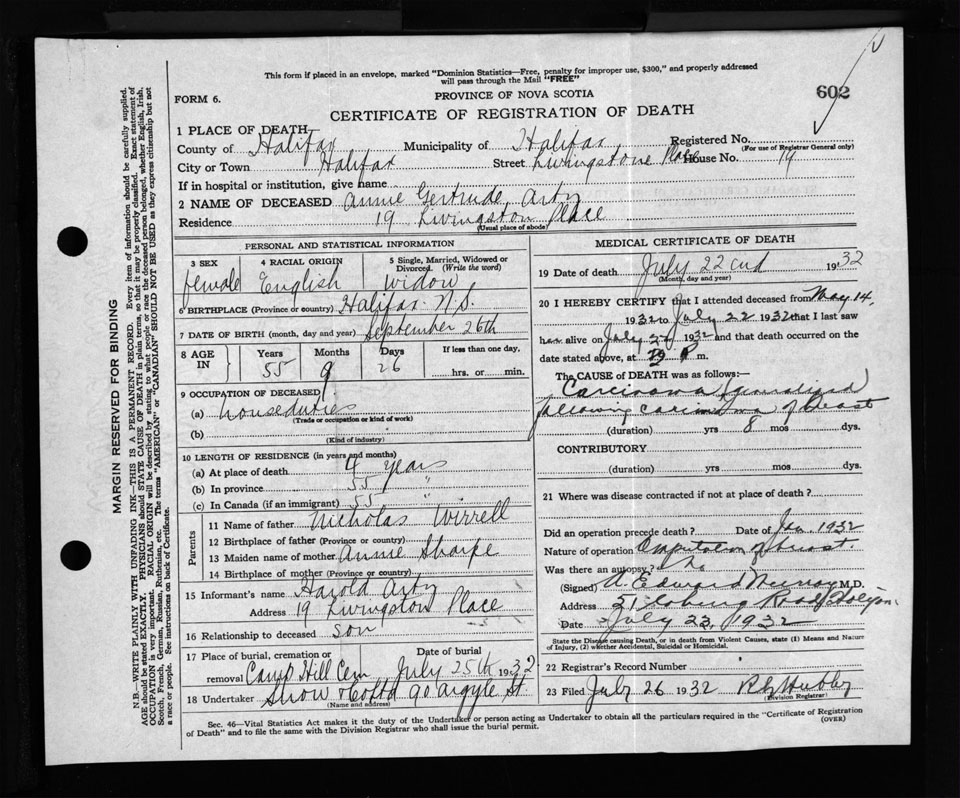 This form if placed in an envelope, marked "Dominion Statistics—Free, penalty for improper use, $300," and properly addressed
will pass through the Mail "FREE"
602
FORM 6.
PROVINCE OF NOVA SCOTIA
CERTIFICATE OF REGISTRATION OF DEATH
1 PLACE OF DEATH
County of Halifax Municipality of Halifax Registered No.
(For use of Registrar General only)
City or Town Halifax Street Livingstone Place House No. 19
If in hospital or institution, give name
2 NAME OF DECEASED Annie Gertrude
Residence 19 Livingston Place
(Usual place of abode)
PERSONAL AND STATISTICAL INFORMATION
3 SEX 4 RACIAL ORIGIN 5 Single, Married, Widowed or
Divorced (Write the word)
female English widow
6 BIRTHPLACE (Province or country) Halifax N.S.
7 DATE OF BIRTH (month, day and year) September 26th
8 AGE IN Years Months Days If less than one day,
55 9 26 hrs. or min.
9 OCCUPATION OF DECEASED
(a) houseduties
(Trade or occupation or kind of work)
(b)
(Kind of industry)
10 LENGTH OF RESIDENCE (in years and months)
(a) At place of death 4 years
(b) In province 55 "
(c) In Canada (if an immigrant) 55 "
Parents
11 Name of father Nicholas Wirrell
12 Birthplace of father (Province or country)
13 Maiden name of mother Annie Sharpe
14 Birthplace of mother (Province or country)
15 Informant's name Harold
Address 19 Livingston Place
16 Relationship to deceased son
17 Place of burial, cremation or Date of burial
removal Camp Hill Cem July 25th 1932
18 Undertaker Snow & Co Ltd 90 Argyle St.
(Name and address)
MEDICAL CERTIFICATE OF DEATH
19 Date of death July 22cnd 1932
(Month, day and year)
20 I HEREBY CERTIFY that I attended deceased from May 14,
1932 to July 22 1932 that I last saw
alive on July 1932 and that death occurred on the
date stated above, at P m.
The CAUSE of DEATH was as follows:—
Carcinoma (generalized)
following carcinoma of breast
(duration) yrs 8 mos dys.
CONTRIBUTORY
(duration) yrs mos dys.
21 Where was disease contracted if not at place of death?
Did an operation precede death? Date of Jan 1932
Nature of operation Amputation of breast.
Was there an autopsy? No
(Signed) A. Edward Murray M.D.
Address Road, Halifax
Date July 23, 1932
State the Disease causing Death, or in death from Violent Causes, state (1) Means and Nature
of Injury, (2) whether Accidental, Suicidal or Homicidal.
22 Registrar's Record Number
23 Filed July 26 1932
Division Registrar
Sec. 46—Vital Statistics Act makes it the duty of the Undertaker or person acting as Undertaker to obtain all the particulars required in the "Certificate of Registration
of Death" and to file the same with the Division Registrar who shall issue the burial permit. (OVER)
MARGIN RESERVED FOR BINDING
N.B.—WRITE PLAINLY WITH UNFADING INK—THIS IS A PERMANENT RECORD. Every item of information should be carefully supplied.
AGE should be stated EXACTLY. PHYSICIANS should STATE CAUSE OF DEATH in plain terms, so that it may be properly classified. Exact statement of
OCCUPATION is very important. RACIAL ORIGIN will be described by stating to what people or race the deceased person belonged, whether English, Irish,
Scotch, French, German, Russian, Ruthenian, etc. The terms "AMERICAN" or "CANADIAN" SHOULD NOT BE USED as they express citizenship but not
a race or people. See instructions on back of Certificate.